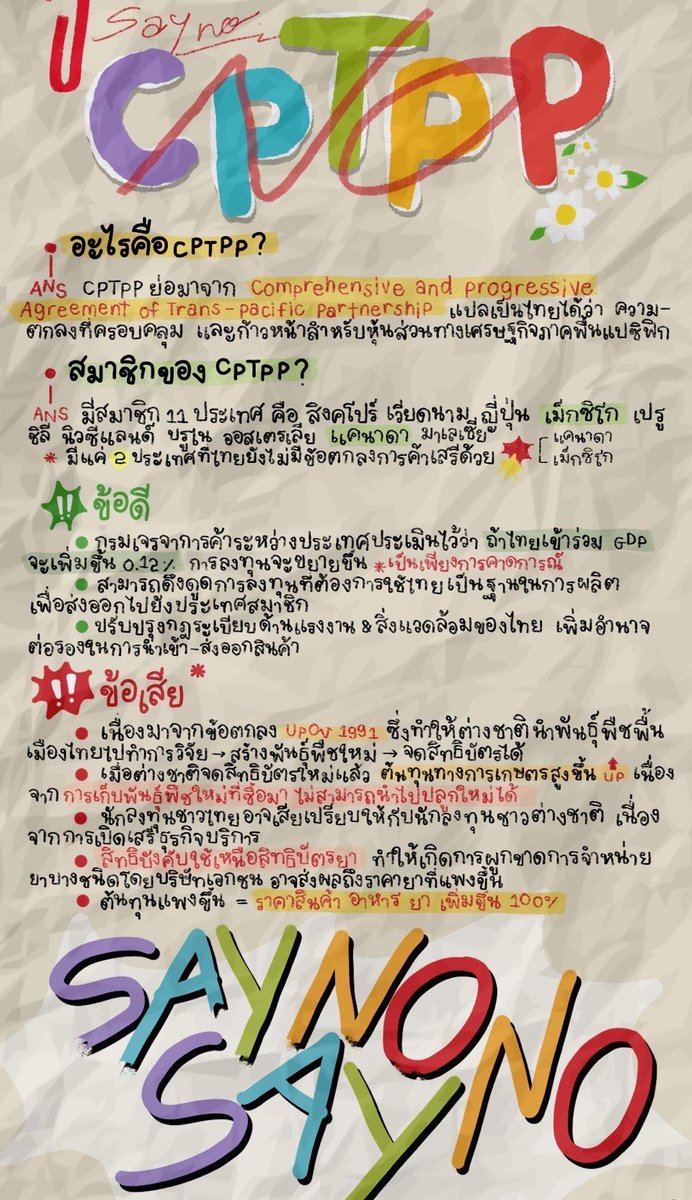 Say no
CPTPP
อะไรคือ CPTPP?
ANS CPTPP ย่อมาจาก Comprehensive and progressive
Agreement of Trans-pacific partnership แปลเป็นไทยได้ว่า ความ-
ตกลงที่ครอบคลุม และก้าวหน้าสำหรับหุ้นส่วนทางเศรษฐกิจภาคพื้นแปซิฟิก
สมาชิกของ CPTPP?
ANS มีสมาชิก 11 ประเทศ คือ สิงคโปร์ เวียดนาม ญี่ปุ่น เม็กซิโก เปรู
ชิลี นิวซีแลนด์ บรูไน ออสเตรเลีย แคนาดา มาเลเซีย
* มีแค่ 2 ประเทศที่ไทยยังไม่มีข้อตกลงการค้าเสรีด้วย แคนาดา
เม็กซิโก
!! ข้อดี
• กรมเจรจาการค้าระหว่างประเทศประเมินไว้ว่า ถ้าไทยเข้าร่วม GDP
จะเพิ่มขึ้น 0.12% การลงทุนจะขยายขึ้น *เป็นเพียงการคาดการณ์
• สามารถดึงดูดการลงทุนที่ต้องการใช้ไทยเป็นฐานในการผลิต
เพื่อส่งออกไปยังประเทศสมาชิก
• ปรับปรุงกฎระเบียบด้านแรงงาน & สิ่งแวดล้อมของไทย เพิ่มอำนาจ
ต่อรองในการนำเข้า-ส่งออกสินค้า
!! ข้อเสีย *
• เนื่องมาจากข้อตกลง UPOV 1991 ซึ่งทำให้ต่างชาตินำพันธุ์พืชพื้น
เมืองไทยไปทำการวิจัย → สร้างพันธุ์พืชใหม่ → จดสิทธิบัตรได้
• เมื่อต่างชาติจดสิทธิบัตรใหม่แล้ว ต้นทุนทางการเกษตรสูงขึ้น UP เนื่อง
จาก การเก็บพันธุ์พืชใหม่ที่ซื้อมา ไม่สามารถนำไปปลูกใหม่ได้
• นักลงทุนชาวไทยอาจเสียเปรียบให้กับนักลงทุนชาวต่างชาติ เนื่อง
จากการเปิดเสรีธุรกิจบริการ
• สิทธิบังคับใช้เหนือสิทธิบัตรยา ทำให้เกิดการผูกขาดการจำหน่าย
ยาบางชนิดโดยบริษัทเอกชน อาจส่งผลถึงราคายาที่แพงขึ้น
• ต้นทุนแพงขึ้น = ราคาสินค้า อาหาร ยา เพิ่มขึ้น 100%
SAY NO
SAY NO